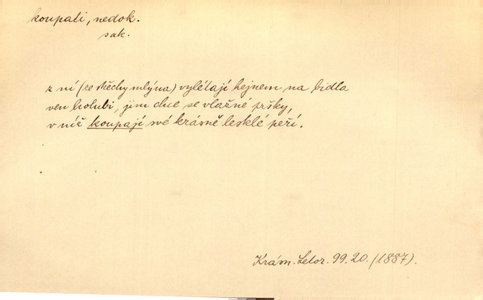 koupati, nedok.
sak.
z ní (ze střechy mlýna) vylétají hejnem na bidla
ven holubi, jim chce se vlažné pršky,
v níž koupají své krásně lesklé peří.
Krám. Letor. 99. 20. (1887).